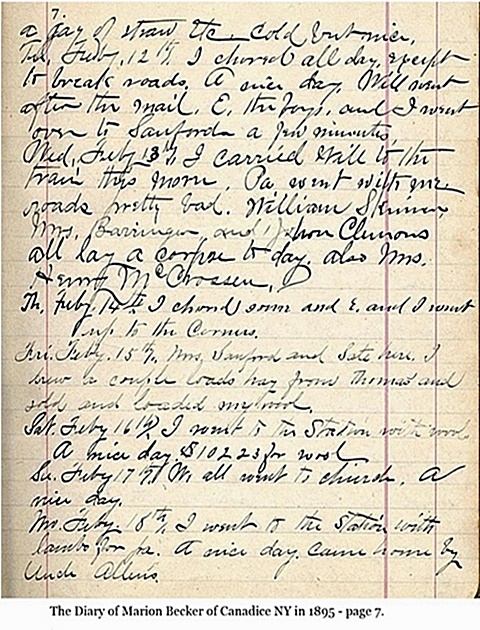 7.
a jag of straw etc. Cold but nice.
Tu. Feby. 12th I chored all day, except
to break roads. A nice day. Will went
after the mail. E. the boys, and I went
over to Sanfords a few minutes
Wed. Feby 13th I carried Will to the
train this morn. Pa went with me
roads pretty bad. William Skinner
Mrs. Barringer, and John Clemons
all lay a corpse to day. also Mrs.
Henry McCrossen.
Th. Feby. 14th I chored some and E. and I went
up to the Corners.
Fri. Feby. 15th, Mrs. Sanford and here. I
drew a couple loads hay from Thomas and
sold and loaded my wool.
Sat. Feby 16th, I went to the Station with wool.
A nice day. $102.23 for wool
Su. Feby 17th all went to church. A
nice day.
Mo. Feby. 18th, I went to the Station with
lambs for pa. A nice day. Came home by
Uncle Allens.
The Diary of Marion Becker of Canadice NY in 1895 - page 7.